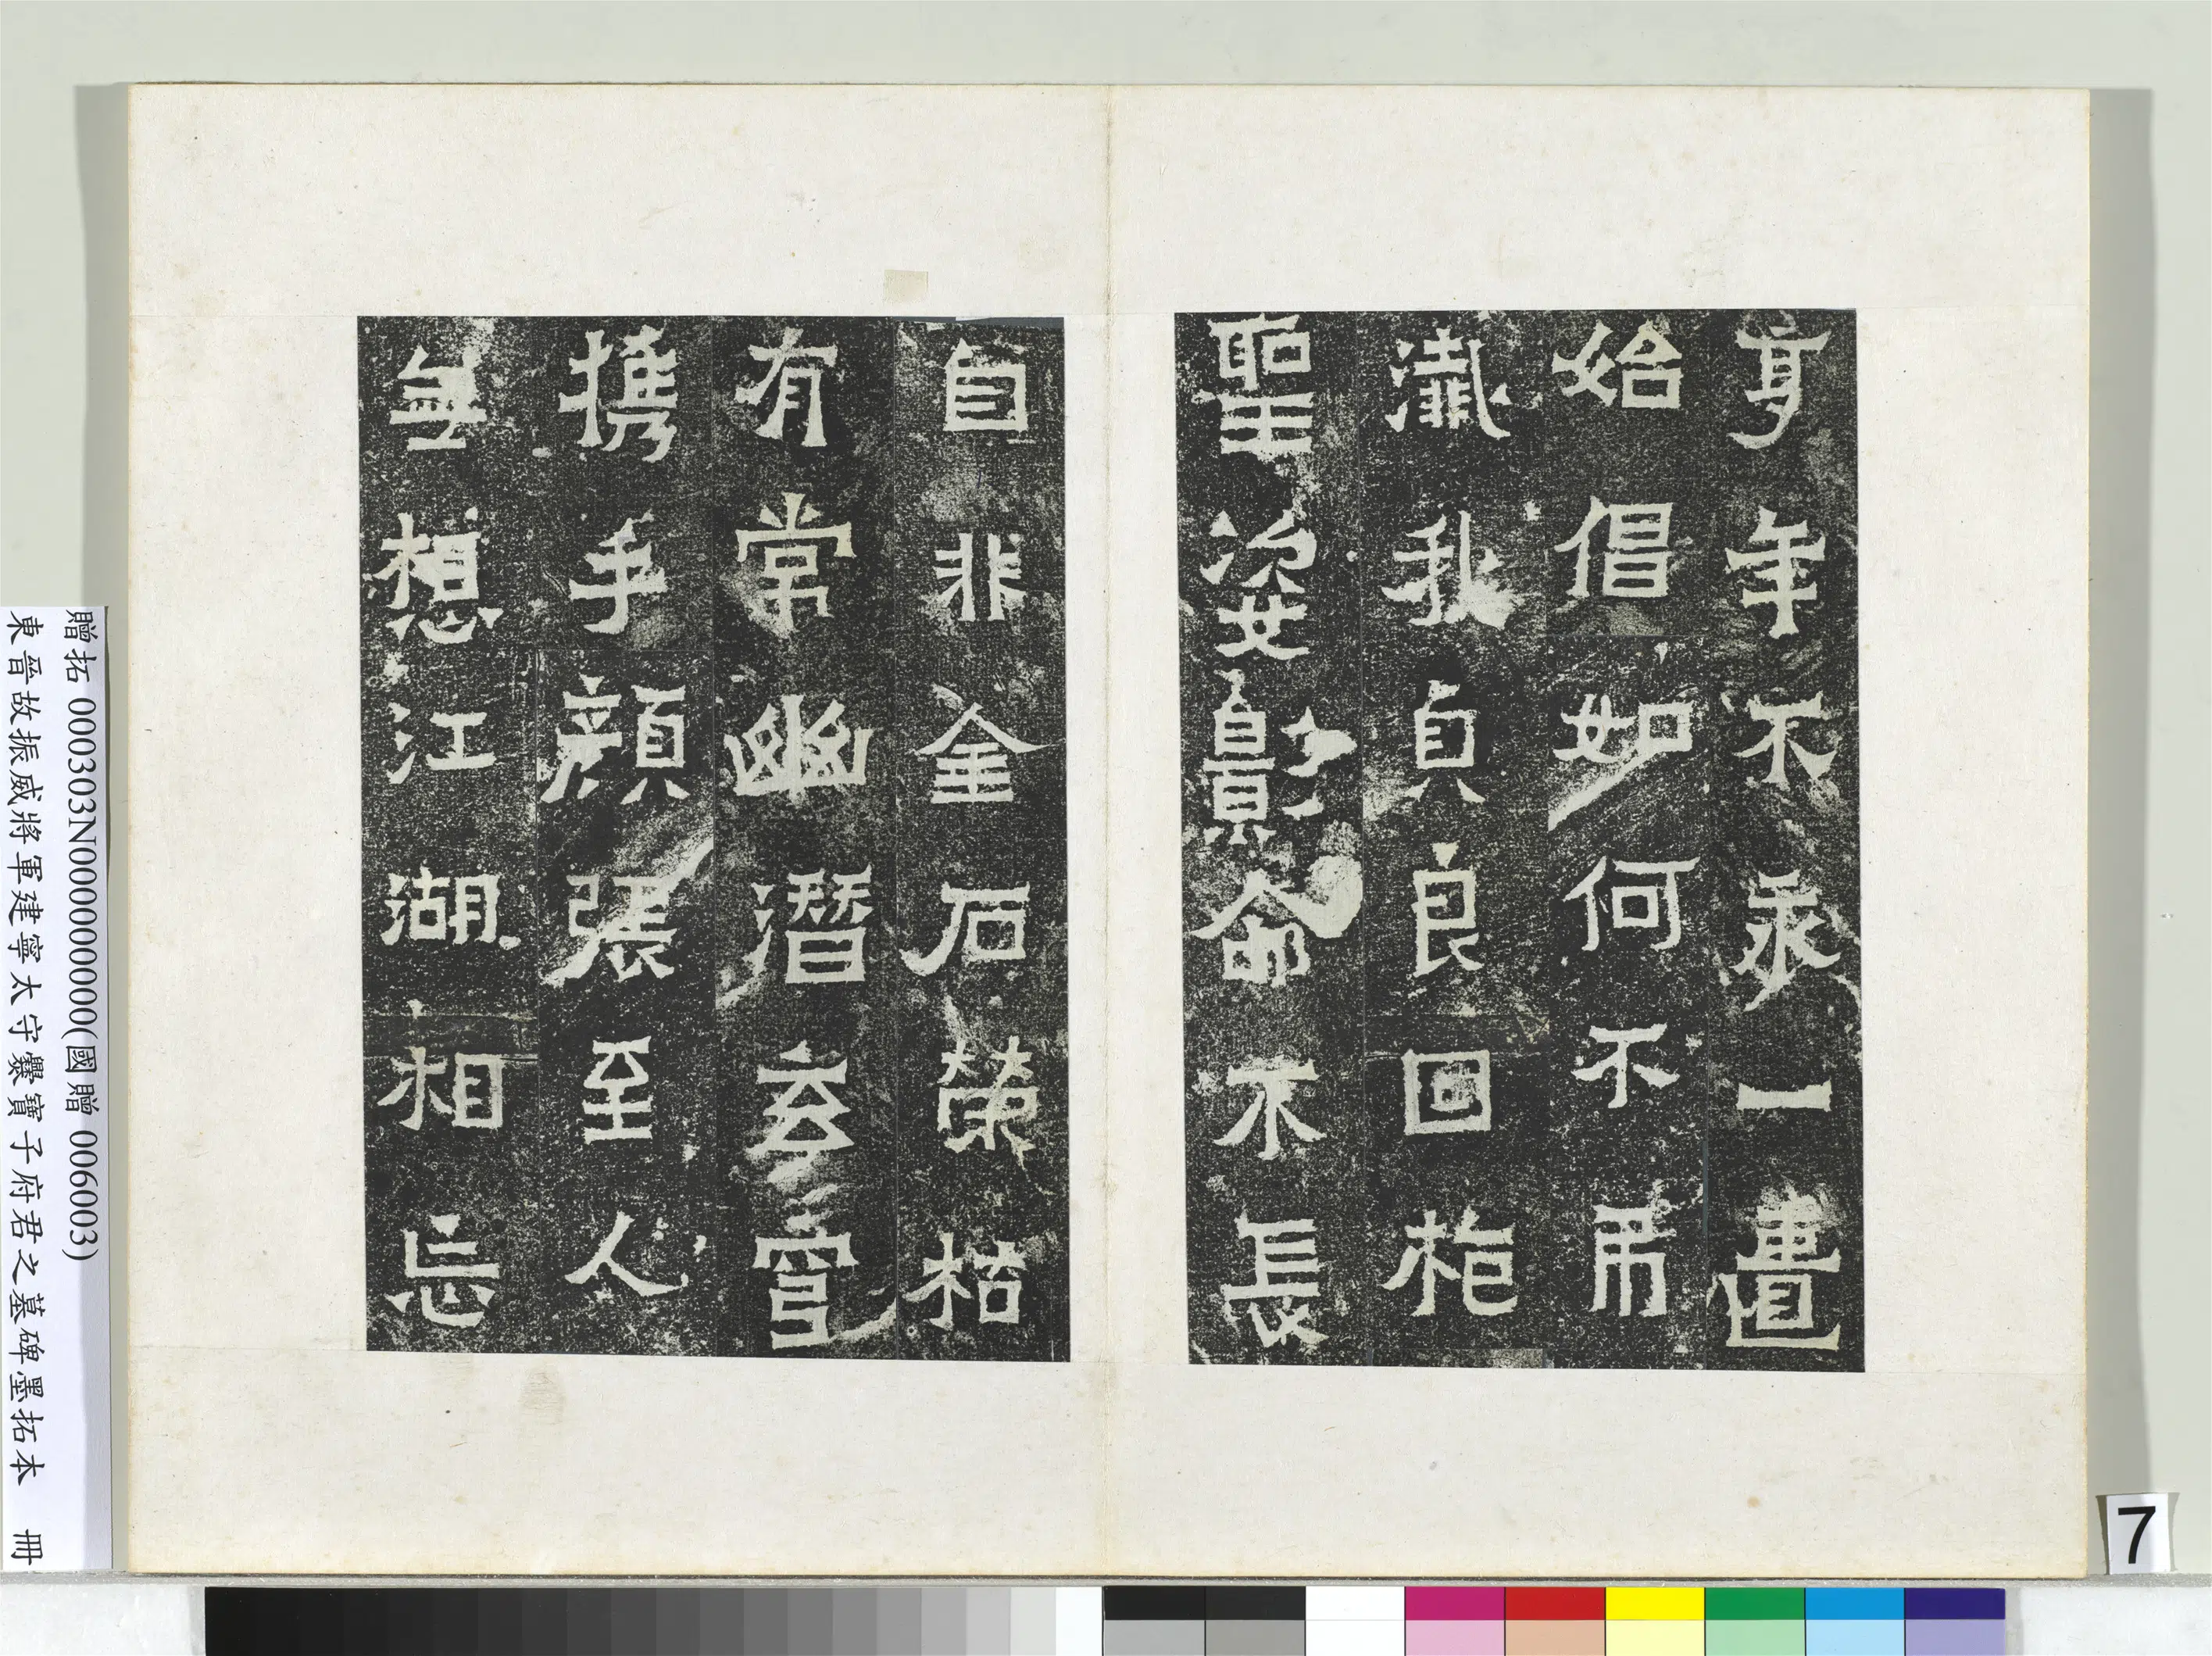 享年不永一匱
始倡如何不弔
殲我貞良回枪
聖姿影命不長
自非金石榮枯
有常幽潛玄穹
携手顔張至人
無想江湖相忘
贈拓 000303N000000000(國贈 006003)
東晉故振威將軍建寧太守爨寶子府君之墓碑墨拓本 冊
7